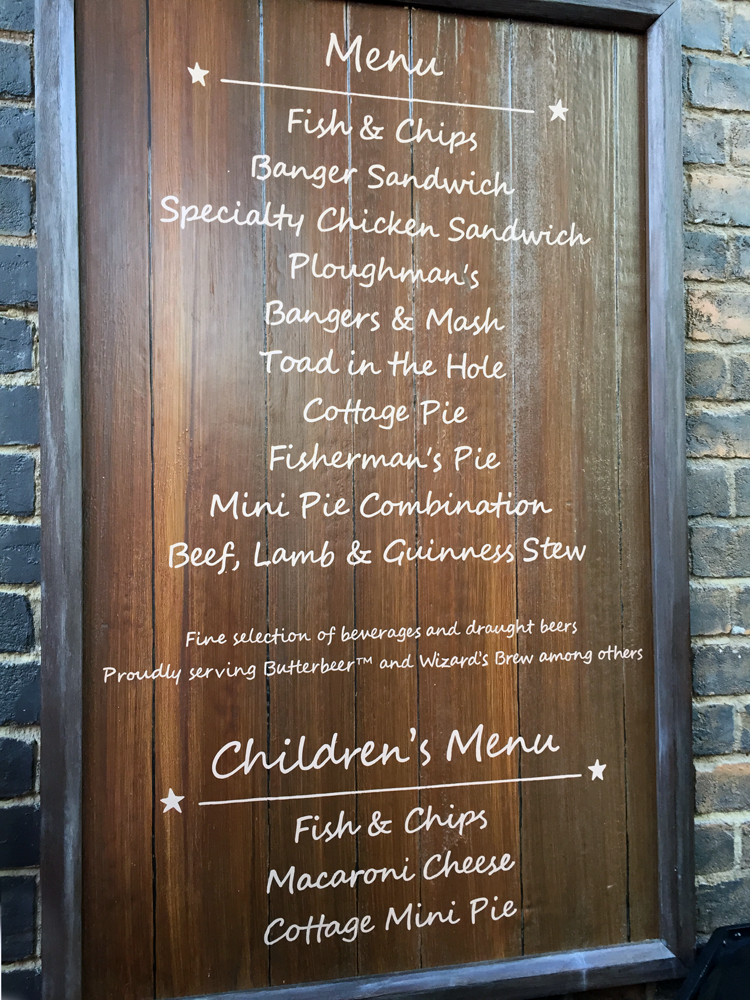 Menu
Fish & Chips
Banger Sandwich
Specialty Chicken Sandwich
Ploughman's
Bangers & Mash
Toad in the Hole
Cottage Pie
Fisherman's Pie
Mini Pie Combination
Beef, Lamb & Guinness Stew
Fine selection of beverages and draught beers
Proudly serving Butterbeer™ and Wizard's Brew among others
Children's Menu
Fish & Chips
Macaroni Cheese
Cottage Mini Pie